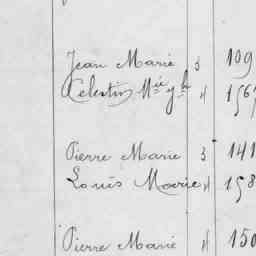 Jean Marie 3 109
Celestin Mie 4 156
Pierre Marie 3 141
Louis Marie 4 158
Pierre Marie 4 150